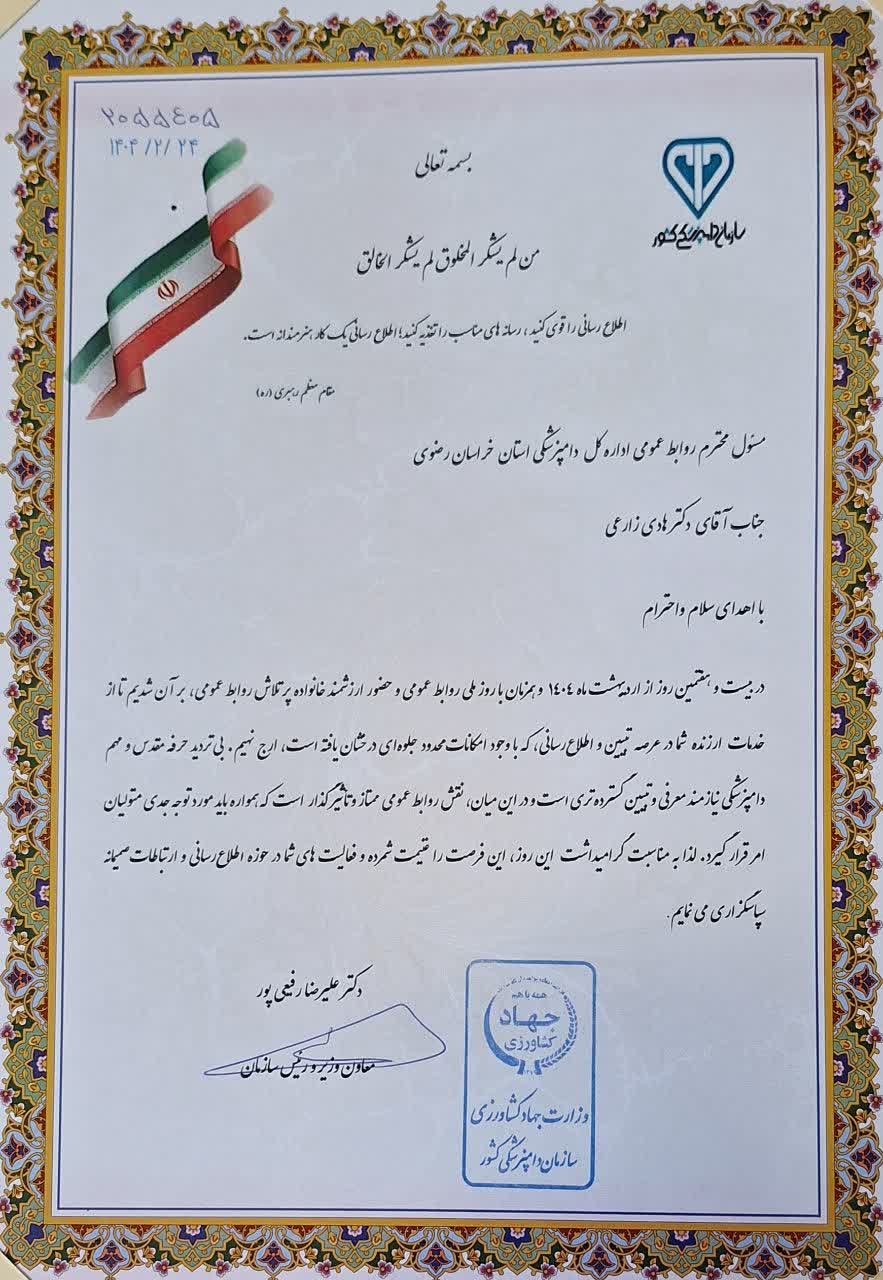 ۲۰۵۵۴۰۵
۱۴۰۴/۲/۲۴
سازمان دامپزشکی کشور
بسمه تعالی
من لم یشکر المخلوق لم یشکر الخالق
اطلاع رسانی را قوی کنید، رسانه های مناسب را تغذیه کنید؛ اطلاع رسانی یک کار هنرمندانه است.
مقام معظم رهبری (ره)
مسئول محترم روابط عمومی اداره کل دامپزشکی استان خراسان رضوی
جناب آقای دکتر هادی زارعی
با اهدای سلام و احترام
در بیست و هفتمین روز از اردیبهشت ماه ۱۴۰۴ و همزمان با روز ملی روابط عمومی و حضور ارزشمند خانواده پرتلاش روابط عمومی، بر آن شدیم تا از
خدمات ارزنده شما در عرصه تبیین و اطلاع‌رسانی، که با وجود امکانات محدود جلوه‌ای درخشان یافته است، ارج نهیم. بی‌تردید حرفه مقدس و مهم
دامپزشکی نیازمند معرفی و تبیین گسترده تری است و در این میان، نقش روابط عمومی ممتاز و تأثیرگذار است که همواره باید مورد توجه جدی متولیان
امر قرار گیرد. لذا به مناسبت گرامیداشت این روز، این فرصت را غنیمت شمرده و فعالیت های شما در حوزه اطلاع‌رسانی و ارتباطات صمیمانه
سپاسگزاری می نمایم.
دکتر علیرضا رفیعی پور
معاون وزیر و رئیس سازمان
همه با هم
جهاد
کشاورزی
وزارت جهاد کشاورزی
سازمان دامپزشکی کشور